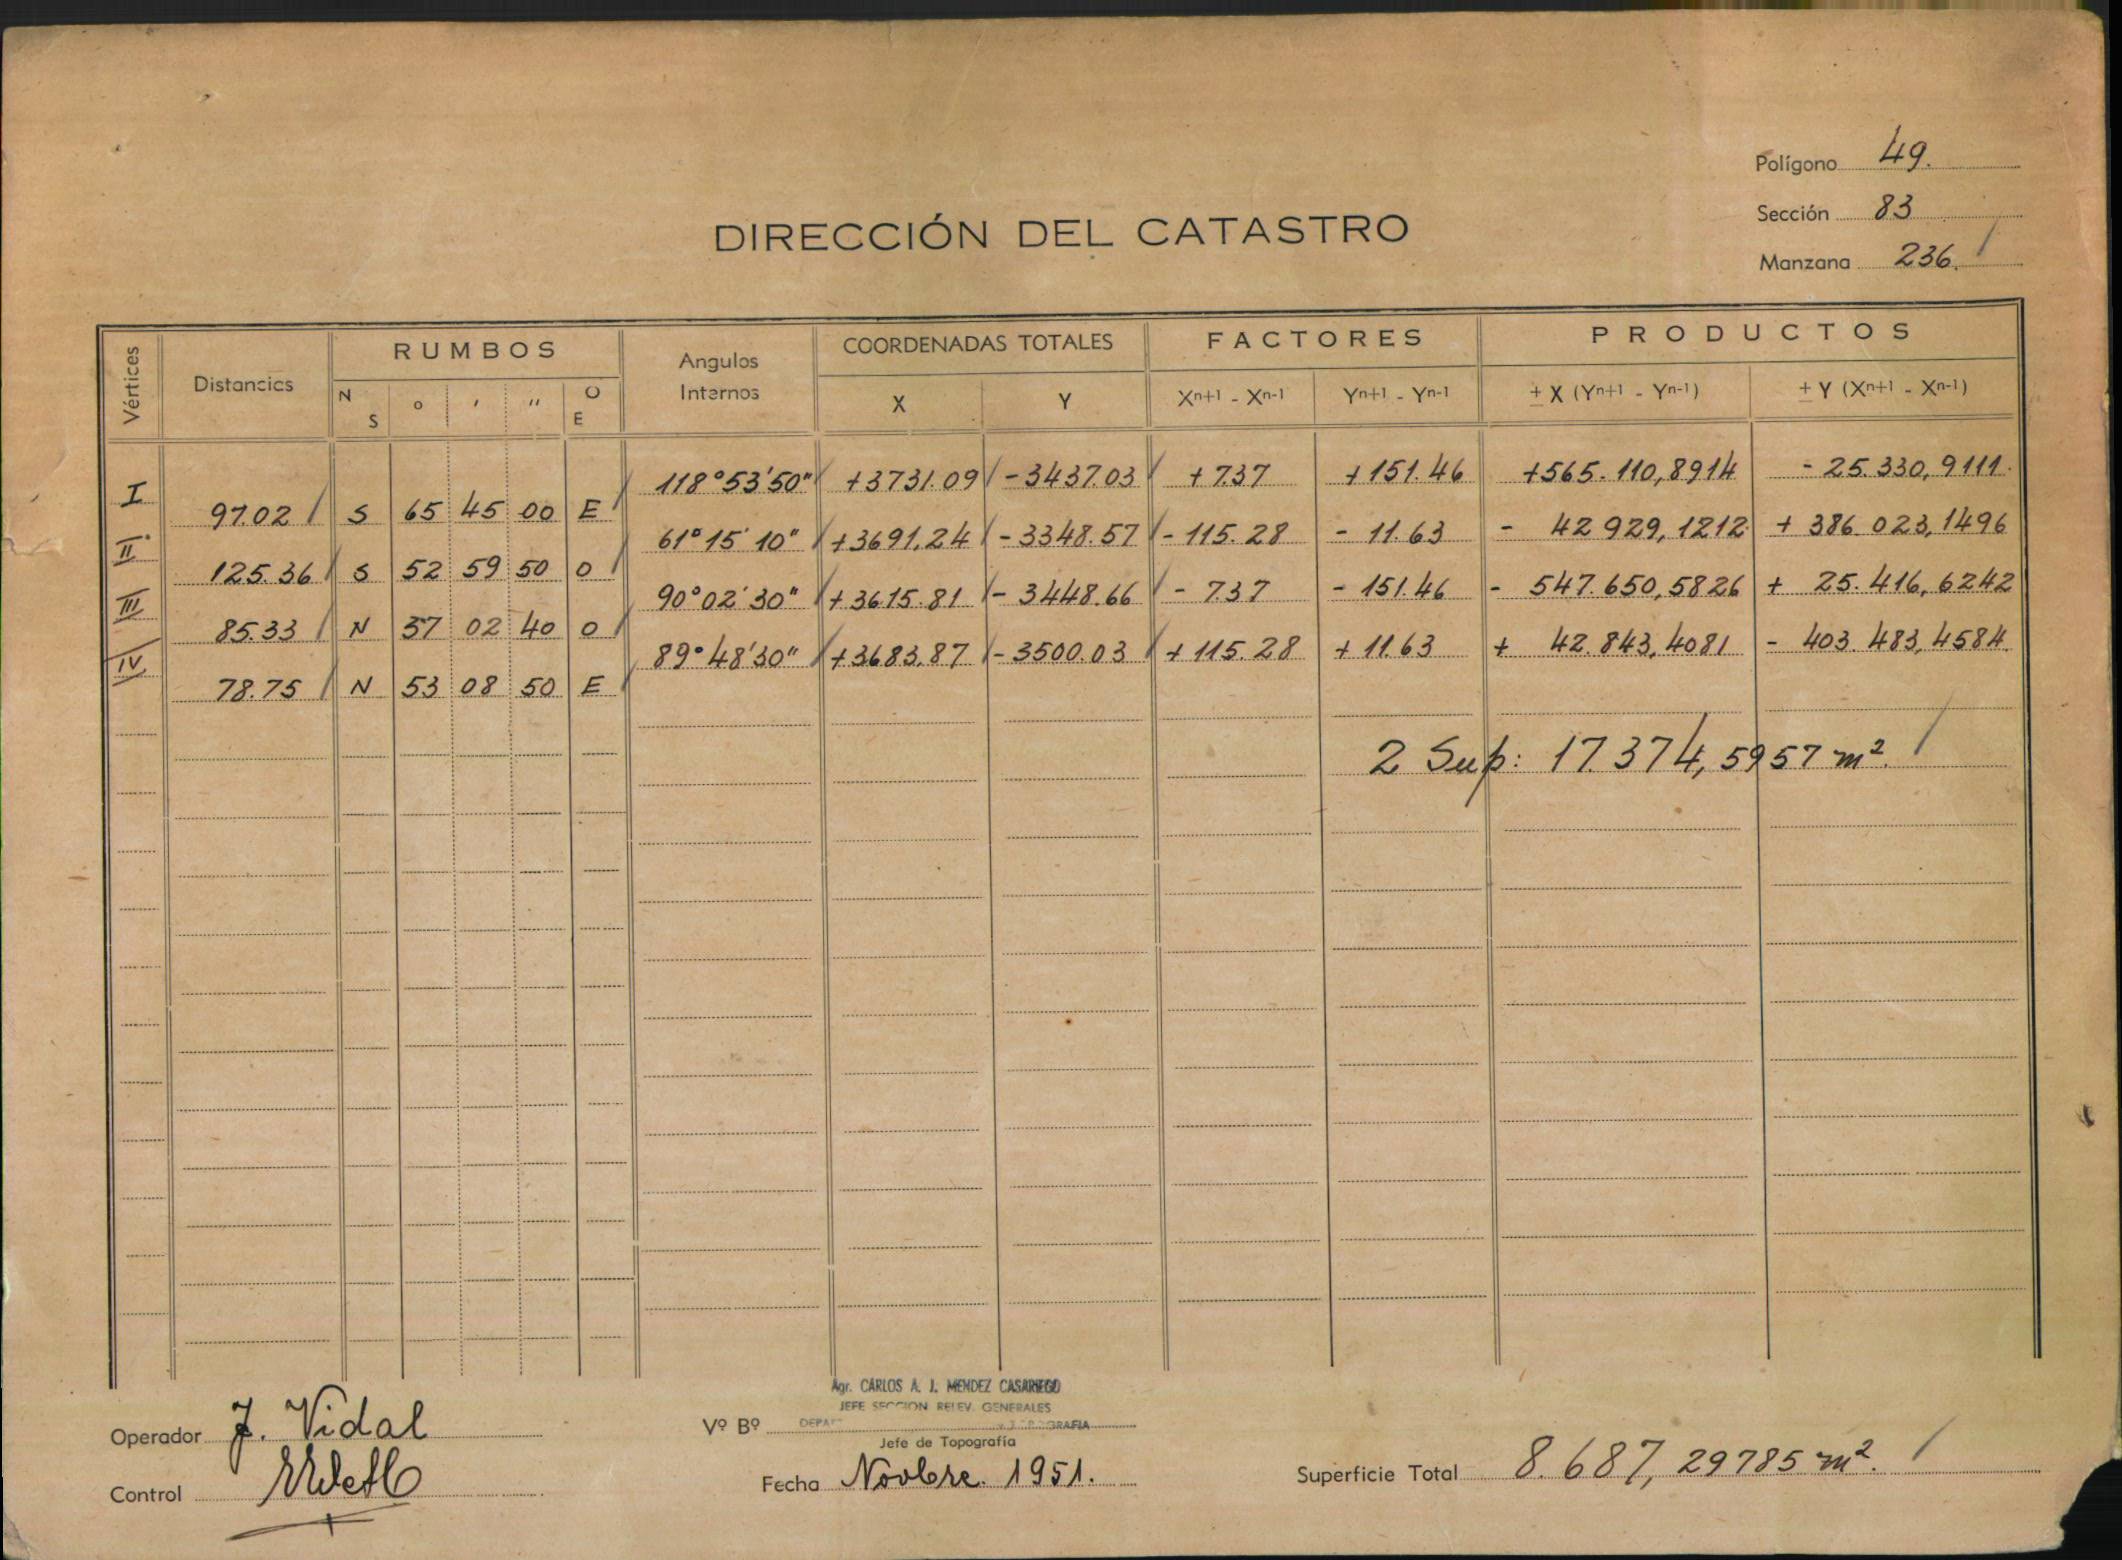 Polígono 49.
Sección 83
Manzana 236.
DIRECCIÓN DEL CATASTRO
Vértices Distancics RUMBOS Angulos Internos COORDENADAS TOTALES FACTORES PRODUCTOS
N S o ' " O E X Y Xn+1 - Xn-1 Yn+1 - Yn-1 ± X (Yn+1 - Yn-1) ± Y (Xn+1 - Xn-1)
I 118°53'50" +3731.09 -3437.03 +7.37 +151.46 +565.110,8914 -25.330,9111.
97.02 S 65 45 00 E
II 61°15'10" +3691.24 -3348.57 -115.28 -11.63 - 42 929,1212 +386 023,1496
125.36 S 52 59 50 O
III 90°02'30" +3615.81 -3448.66 -7.37 -151.46 -547.650,5826 + 25.416,6242
85.33 N 37 02 40 O
IV 89°48'30" +3683.87 -3500.03 +115.28 +11.63 + 42.843,4081 -403.483,4584.
78.75 N 53 08 50 E
2 Sup: 17.374,5957 m².
Agr. CARLOS A. J. MENDEZ CASARIEGO
JEFE SECCION RELEV. GENERALES
Operador J. Vidal Vº Bº
Jefe de Topografía
Control Fecha Novbre. 1951. Superficie Total 8.687,29785 m².